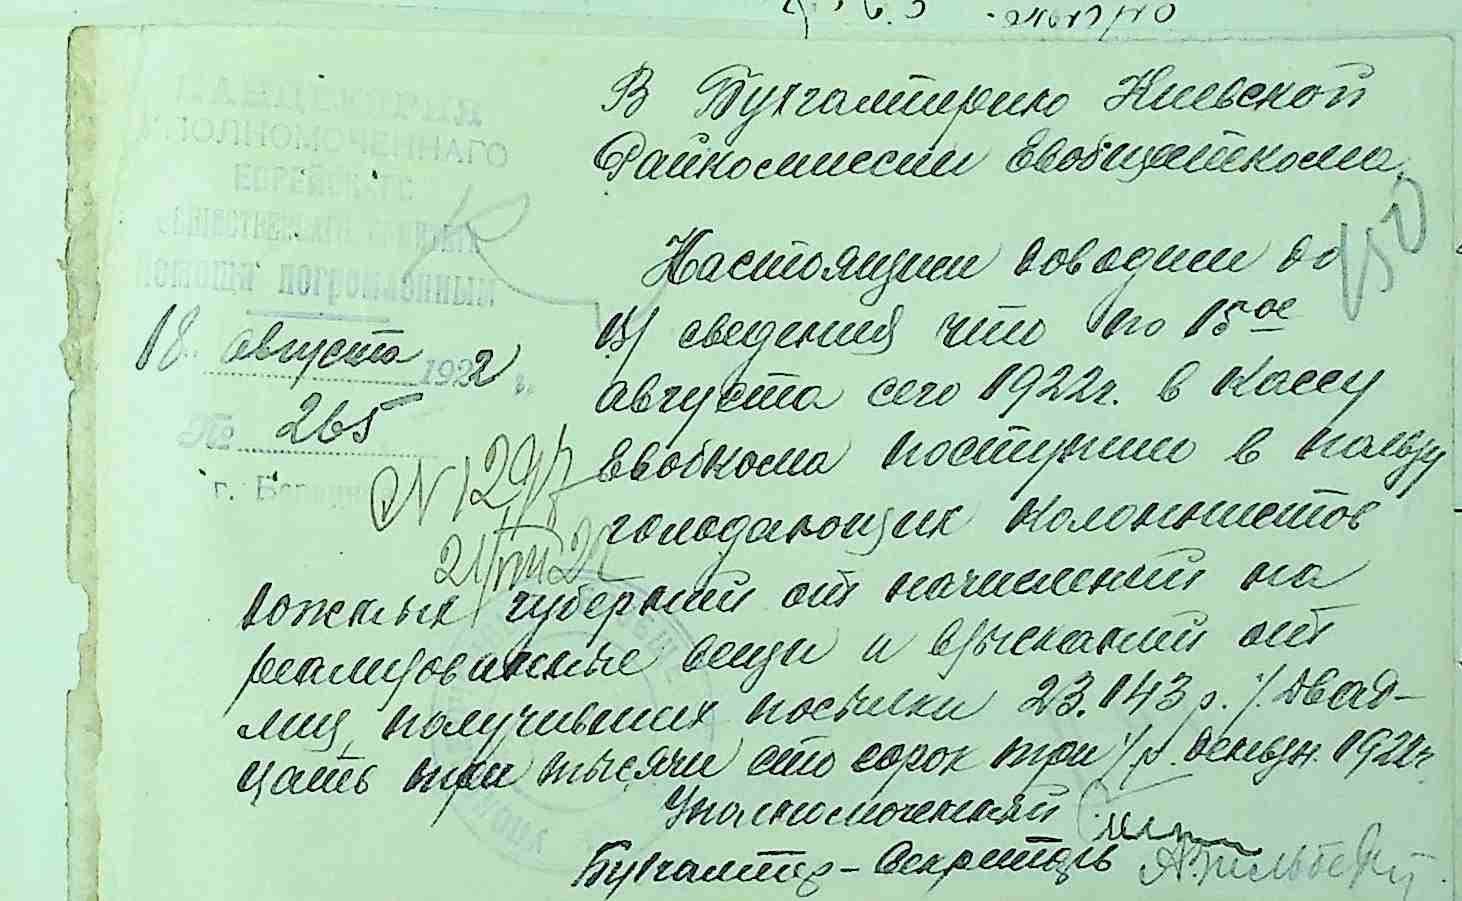 В Бухгалтерию Киевской
Райкомиссии Евобщесткома.
КАНЦЕЛЯРИЯ
УПОЛНОМОЧЕННАГО
ЕВРЕЙСКАГО
ОБЩЕСТВЕННАГО КОМИТЕТА
ПОМОЩИ ПОГРОМЛЕННЫМ
18 августа 1922 г.
№ 265
г.
150
Настоящим доводим до
В/ сведения что по 15ое
августа сего 1922г. в кассу
Евобкома поступило в пользу
голодающих колонистов
N 1297
21/VIII 22
южных губерний от начислений на
реализованные вещи и взысканий от
лиц, получивших посылки 23.143 р. /. Двад-
цать три тысячи сто сорок три ./р. дензн. 1922г.
Уполномоченный
Бухгалтер-Секретарь